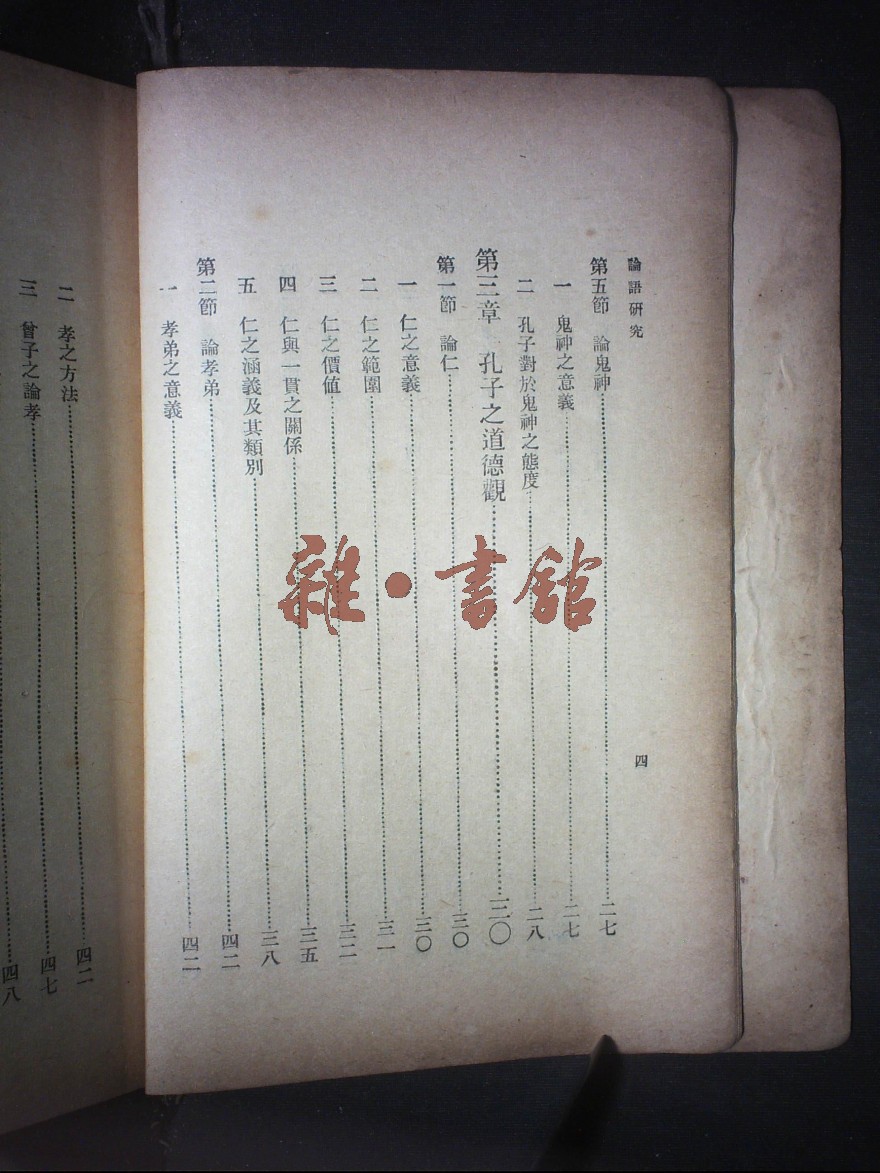 論語研究
四
第五節 論鬼神……二七
一 鬼神之意義……二七
二 孔子對於鬼神之態度……二八
第三章 孔子之道德觀……三〇
第一節 論仁……三〇
一 仁之意義……三〇
二 仁之範圍……三一
三 仁之價值……三二
四 仁與一貫之關係……三五
五 仁之涵義及其類別……三八
第二節 論孝弟……四二
一 孝弟之意義……四二
二 孝之方法……四二
三 曾子之論孝……四七
……四八
雜·書館